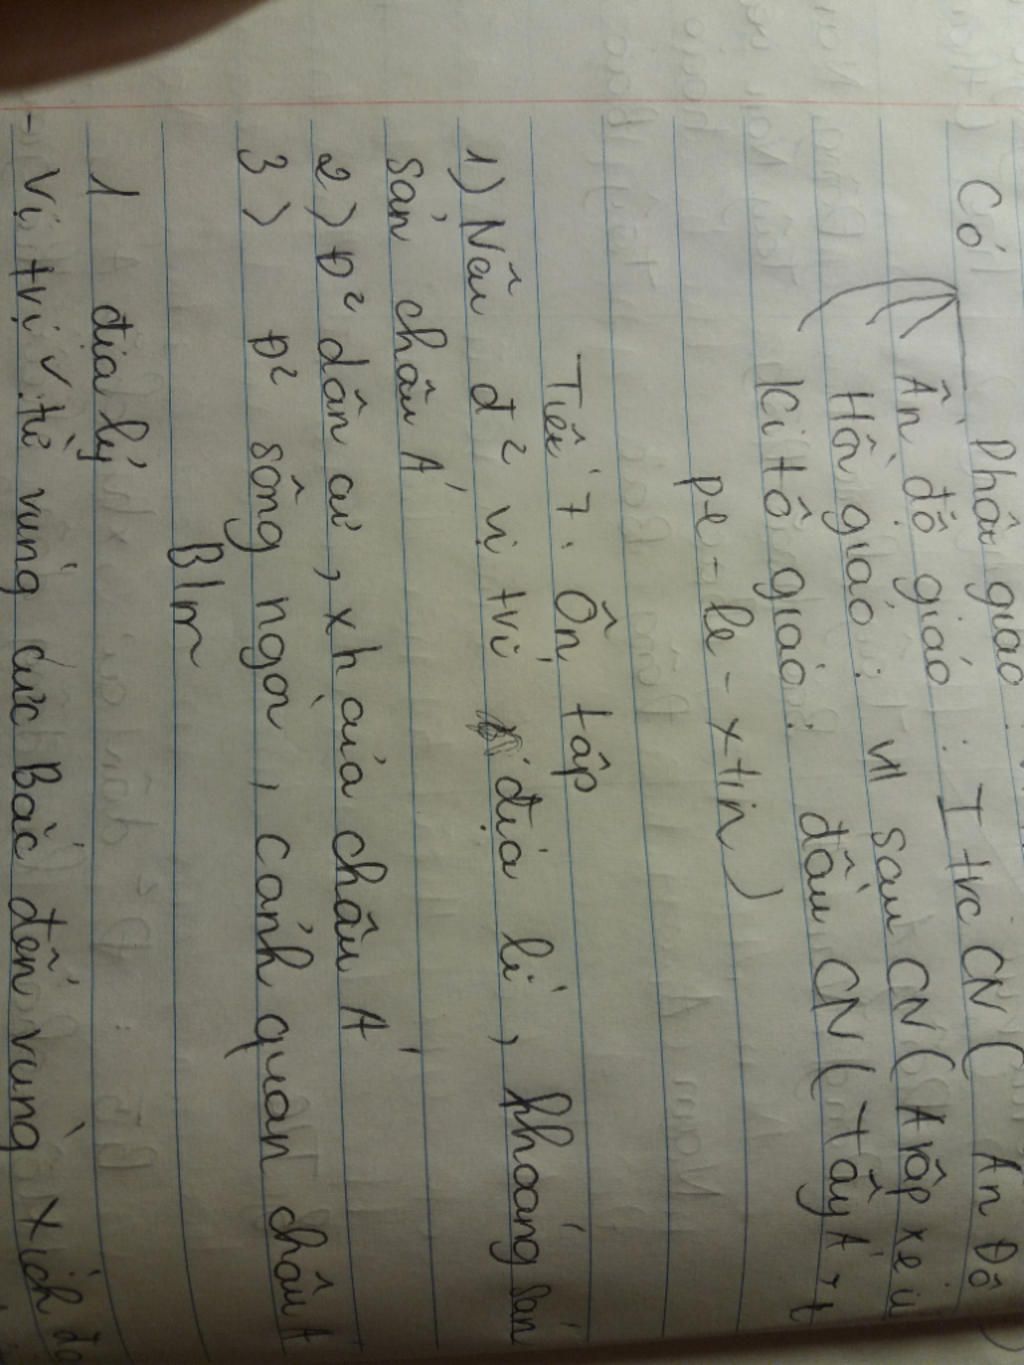 Có
Phật giáo
Ấn độ giáo : I trc CN ( Ấn Độ )
Hồi giáo : VII sau CN ( A rập xe u
Ki tô giáo : đầu CN ( Tây Á
pe - le - xtin )
Tiết 7. Ôn tập
1) Nêu đ² vị trí địa lí , khoáng sản
sản châu Á
2) Đ² dân cư , xh của châu Á
3) Đ² sông ngòi , cảnh quan châu Á
Blm
1 địa lý
- Vị trí từ vùng cực Bắc đến vùng xích đạ